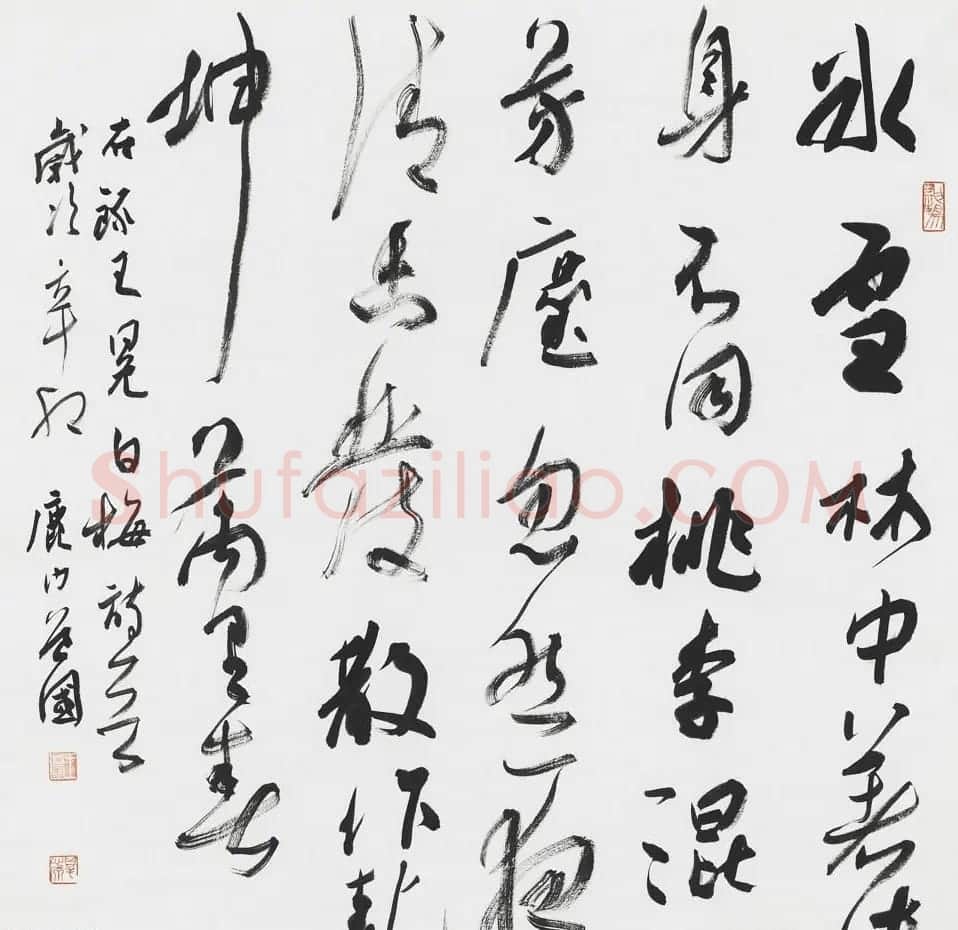 冰雪林中著此
身不同桃李混
芳塵忽然一夜
清香發散作乾
坤萬里春
右錄王冕白梅詩一首
歲次辛卯
Shufaziliao.COM